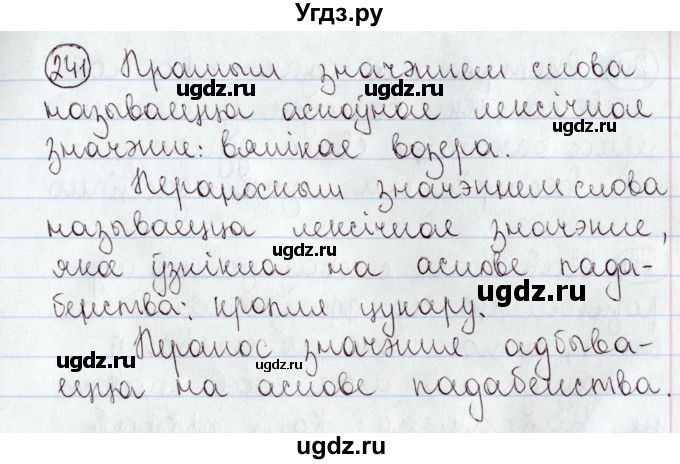 Угдз.ру
241 Прамым значэннем слова
называецца асноўнае лексічнае
значэнне: вялікае возера.
Пераносным значэннем слова
называецца лексічнае значэнне,
якое ўзнікла на аснове пада-
бенства: кропля цукару.
Перанос значэння адбыва-
ецца на аснове падабенства.
ugdz.ru
ugdz.ru
ugdz.ru
ugdz.ru
ugdz.ru
ugdz.ru
ugdz.ru
ugdz.ru
ugdz.ru
ugdz.ru